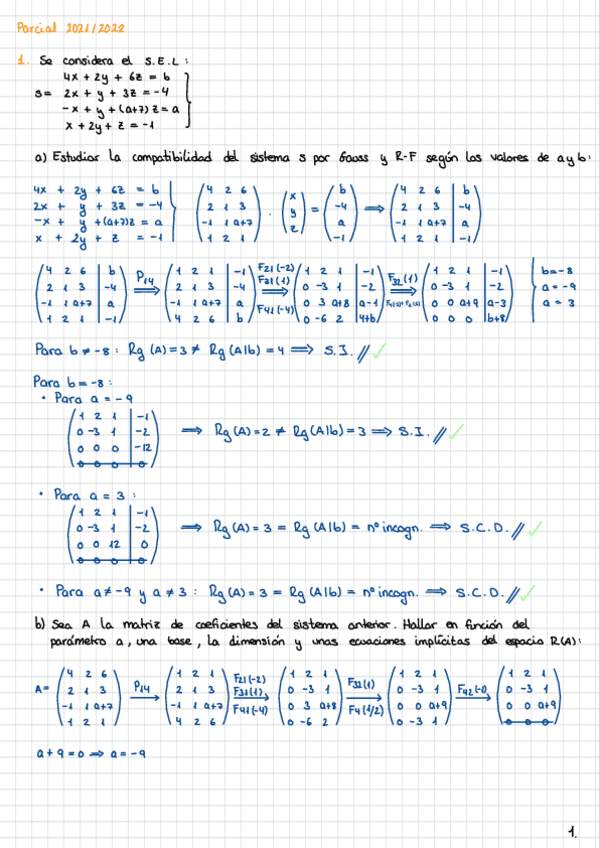 Parcial 2021/2022
1. Se considera el S.E.L:
4x + 2y + 6z = b
S = 2x + y + 3z = -4
-x + y + (a+7)z = a
x + 2y + z = -1
a) Estudiar la compatibilidad del sistema s por Gauss y R-F según los valores de a y b:
4x + 2y + 6z = b
2x + y + 3z = -4
-x + y + (a+7)z = a
x + 2y + z = -1
(4 2 6
2 1 3
-1 1 a+7
1 2 1) · (x
y
z) = (b
-4
a
-1) ⟹ (4 2 6 | b
2 1 3 | -4
-1 1 a+7 | a
1 2 1 | -1)
(4 2 6 | b
2 1 3 | -4
-1 1 a+7 | a
1 2 1 | -1) P14 ⟹ (1 2 1 | -1
2 1 3 | -4
-1 1 a+7 | a
4 2 6 | b) F21(-2)
F31(1)
F41(-4) ⟹ (1 2 1 | -1
0 -3 1 | -2
0 3 a+8 | a-1
0 -6 2 | 4+b) F32(1) ⟹ (1 2 1 | -1
0 -3 1 | -2
0 0 a+9 | a-3
0 0 0 | b+8) { b = -8
a = -9
a = 3
Para b ≠ -8 : Rg(A) = 3 ≠ Rg(A|b) = 4 ⟹ S.I. // ✓
Para b = -8 :
• Para a = -9
(1 2 1 | -1
0 -3 1 | -2
0 0 0 | -12
0 0 0 | 0) ⟹ Rg(A) = 2 ≠ Rg(A|b) = 3 ⟹ S.I. // ✓
• Para a = 3 :
(1 2 1 | -1
0 -3 1 | -2
0 0 12 | 0
0 0 0 | 0) ⟹ Rg(A) = 3 = Rg(A|b) = nº incogn. ⟹ S.C.D. // ✓
• Para a ≠ -9 y a ≠ 3 : Rg(A) = 3 = Rg(A|b) = nº incogn. ⟹ S.C.D. // ✓
b) Sea A la matriz de coeficientes del sistema anterior. Hallar en función del
parámetro a, una base, la dimensión y unas ecuaciones implícitas del espacio R(A):
A = (4 2 6
2 1 3
-1 1 a+7
1 2 1) P14 → (1 2 1
2 1 3
-1 1 a+7
4 2 6) F21(-2)
F31(1)
F41(-4) → (1 2 1
0 -3 1
0 3 a+8
0 -6 2) F32(1)
F4(1/2) → (1 2 1
0 -3 1
0 0 a+9
0 -3 1) F42(-1) → (1 2 1
0 -3 1
0 0 a+9
0 0 0)
a + 9 = 0 ⟹ a = -9
1.